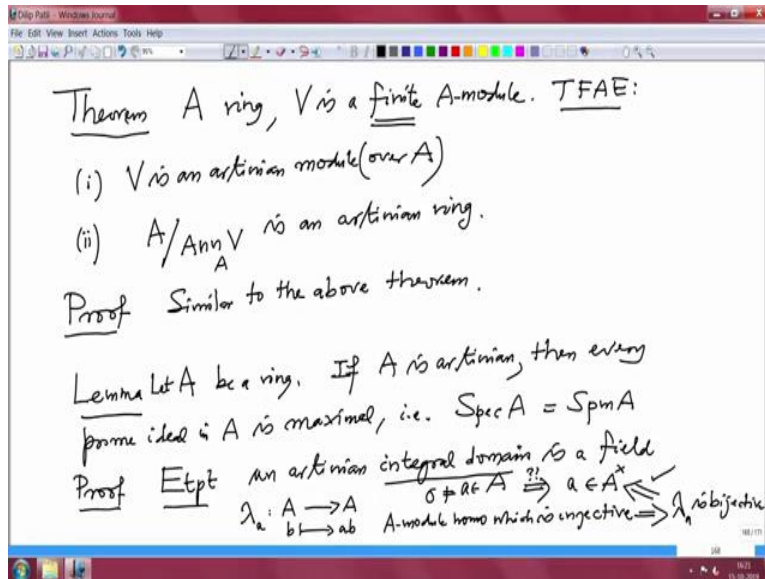 Dilip Patil - Windows Journal
File Edit View Insert Actions Tools Help
Theorem A ring, V is a finite A-module. TFAE:
(i) V is an artinian module (over A)
(ii) A/Ann_A V is an artinian ring.
Proof Similar to the above theorem.
Lemma Let A be a ring. If A is artinian, then every
prime ideal in A is maximal, i.e. Spec A = Spm A
Proof Etpt an artinian integral domain is a field
0 ≠ a ∈ A ⇒?? a ∈ A^× ✓
λ_a : A → A A-module homo which is injective ⇒ λ_a is bijective
b ↦ ab
168/171
168
16:21
15-10-2019